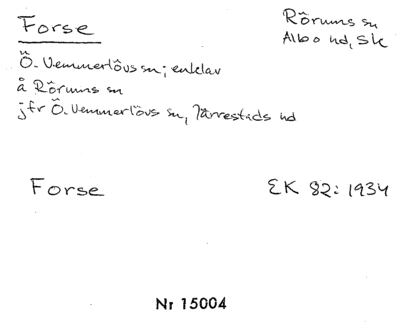 Forse
Rörums sn
Albo hd, Sk
Ö. Vemmerlövs sn; enklav
å Rörums sn
jfr Ö. Vemmerlövs sn, Järrestads hd
Forse
EK 82: 1934
Nr 15004